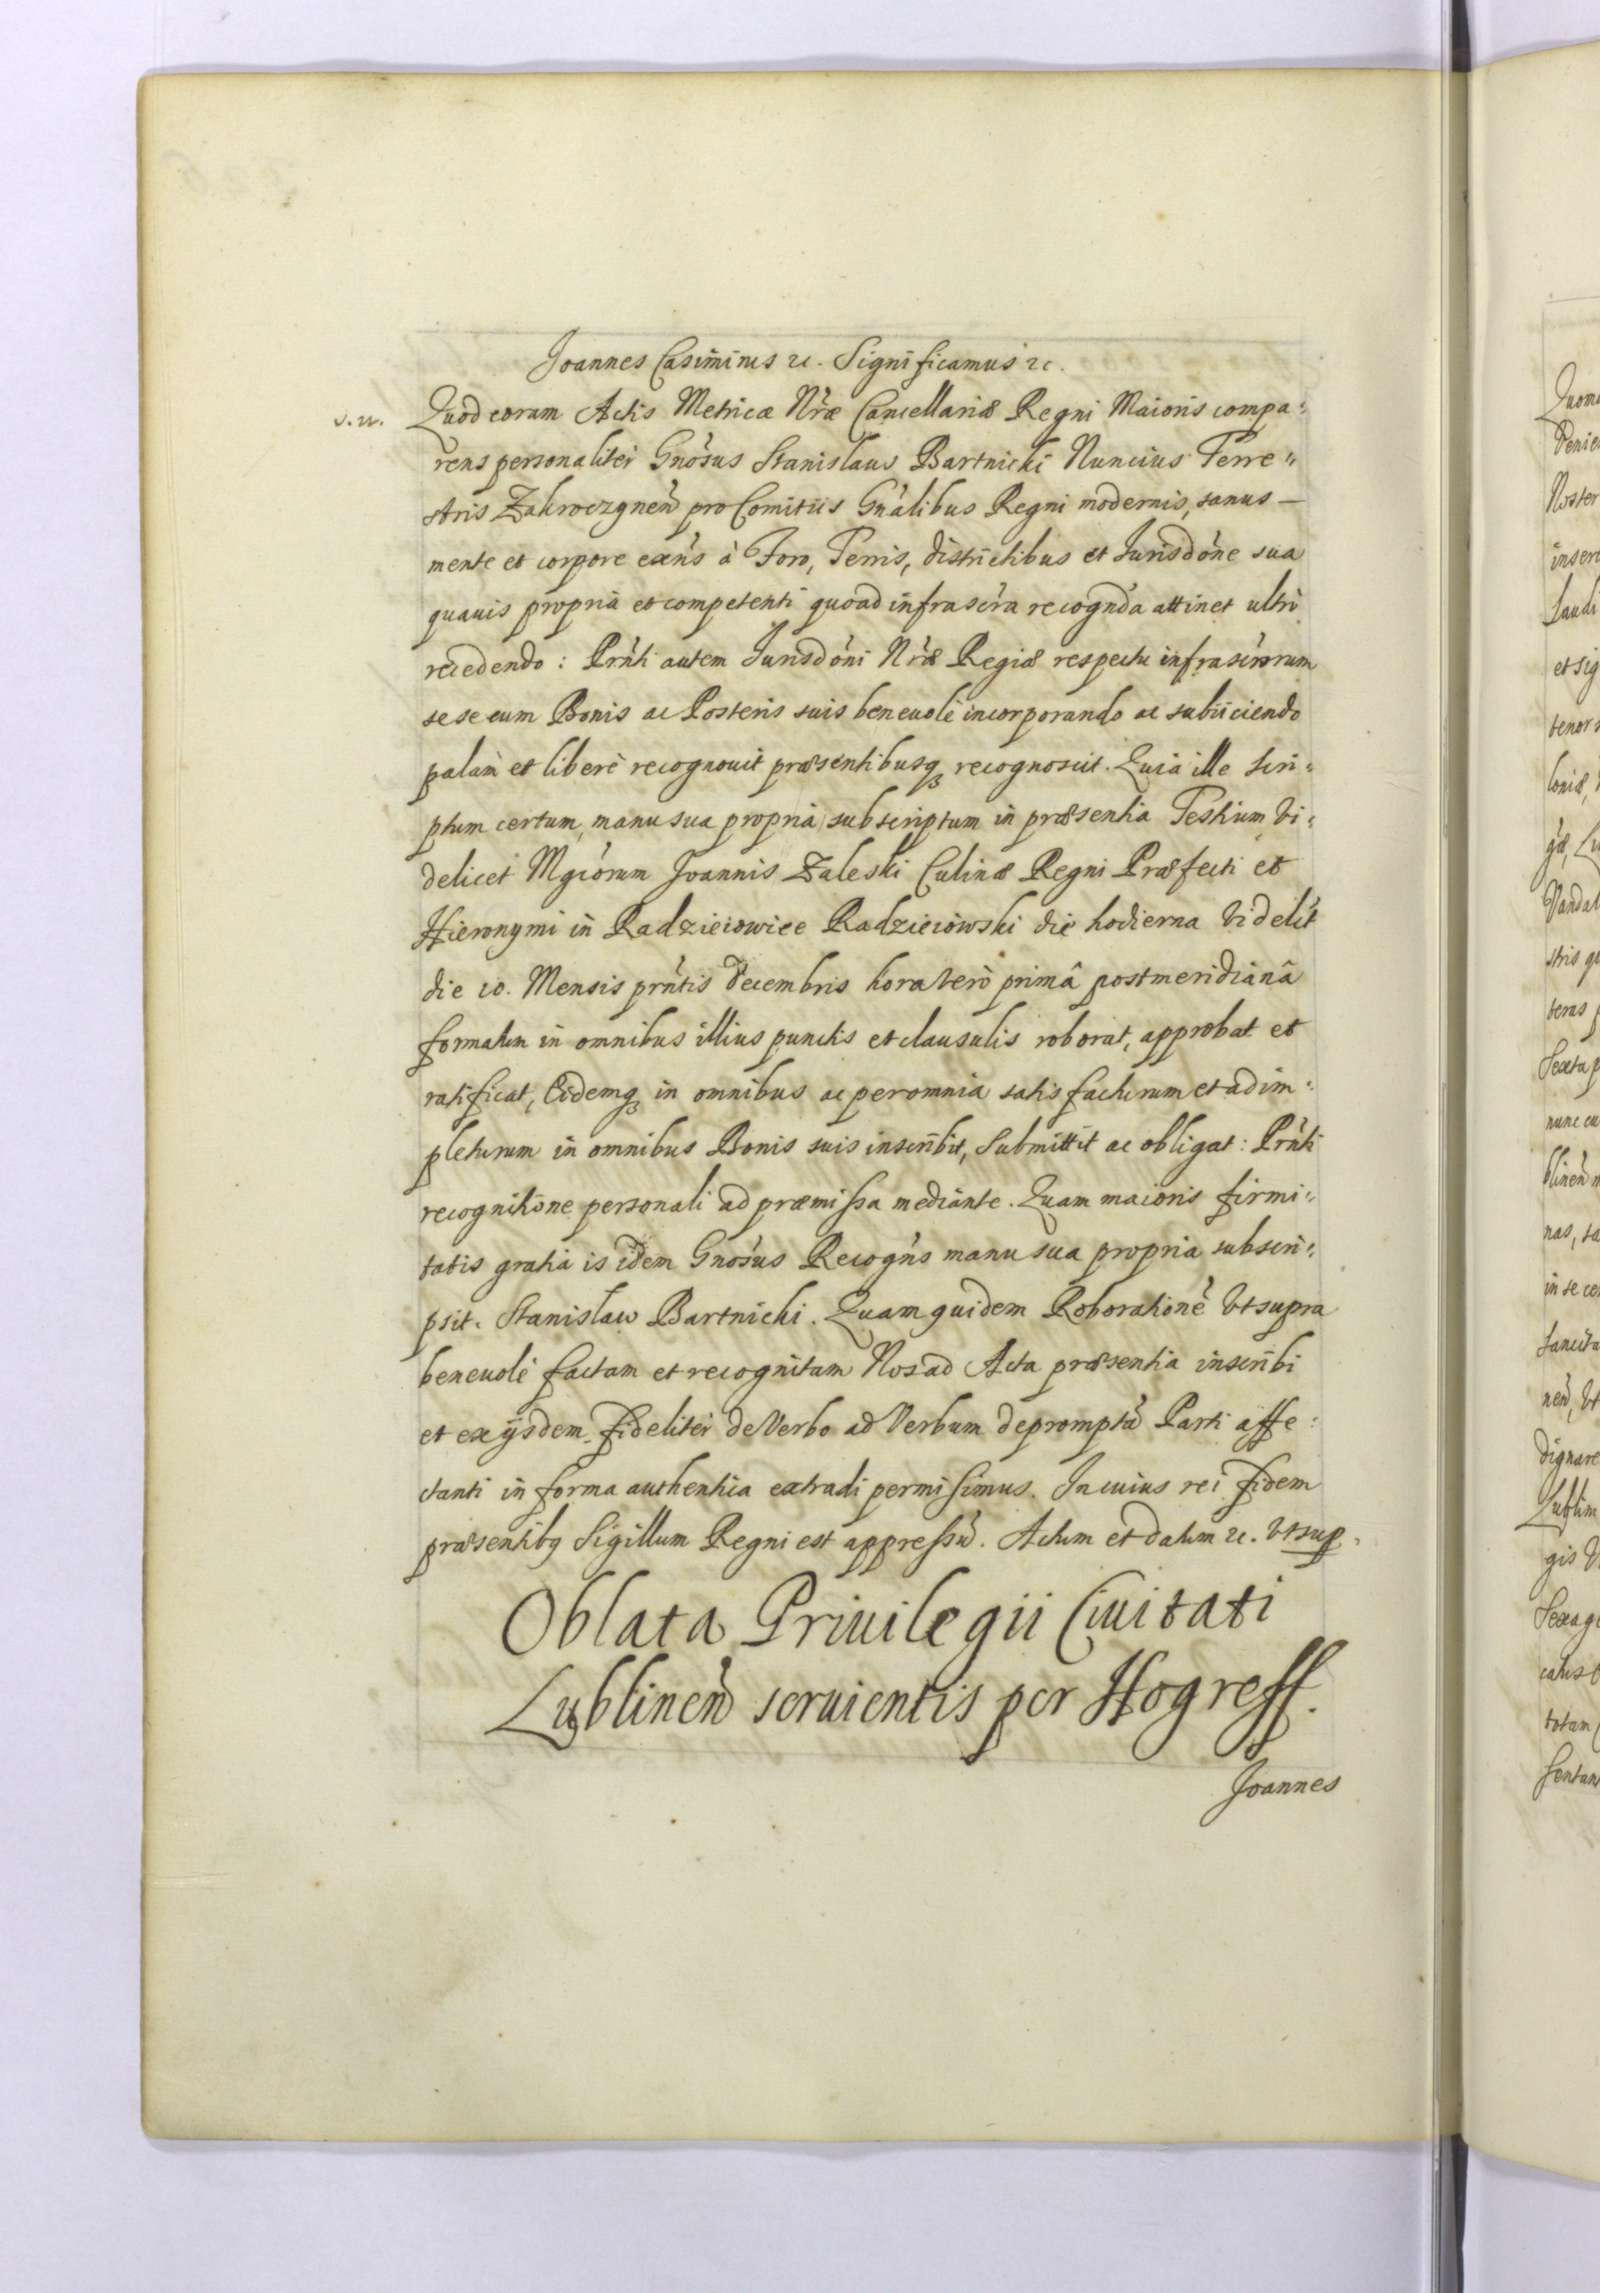 Joannes Casimirus rc. Significamus rc.
Quod coram Actis Metricæ Nr̃æ Cancellariæ Regni Maioris compa=
rens personaliter Gnõsus Stanislaus Bartnicki Nuncius Terre=
stris Zakroczyneñ pro Comitiis Gñalibus Regni modernis, sanus –
mente et corpore exñs à Foro, Terris, districtibus et Jurisdõne sua
quauis propria et competenti quoad infrascr̃a recognða attinet ultrò
recedendo: Prñti autem Jurisdõni Nr̃æ Regiæ respectu infrascr̃orum
sese cum Bonis ac Posteris suis beneuolè incorporando ac subiiciendo
palàm et liberè recognouit præsentibusq recognoscit. Quia ille Scri=
ptum certum manu sua propria subscriptum in præsentia Testium Vi=
delicet Mgcõrum Joannis Zaleski Culinæ Regni Præfecti et
Hieronymi in Radzieiowice Radzieiowski die hodierna Videlẽt
die 10. Mensis prñtis Decembris hora verò primâ postmeridianâ
formatum in omnibus illius punctis et clausulis roborat, approbat et
ratificat, Eidemq in omnibus ac per omnia satisfacturum et adim=
pleturum in omnibus Bonis suis inscribit, Submittit ac obligat: Prñti
recognitione personali ad præmissa mediante. Quam maioris firmi=
tatis gratia is idem Gnõsus Recogñs manu sua propria subscri=
psit. Stanislaw Bartnicki. Quam quidem Roborationẽ Vt supra
beneuolè factam et recognitam Nos ad Acta præsentia inscribi
et ex ijsdem fideliter de Verbo ad Verbum depromptã Parti affe=
ctanti in forma authentica extradi permisimus. In cuius rei fidem
præsentibq Sigillum Regni est appressũ. Actum et datum rc. Vt sup.
Oblata Priuilegii Ciuitati
Lublineñ seruientis per Hogreff.
Joannes